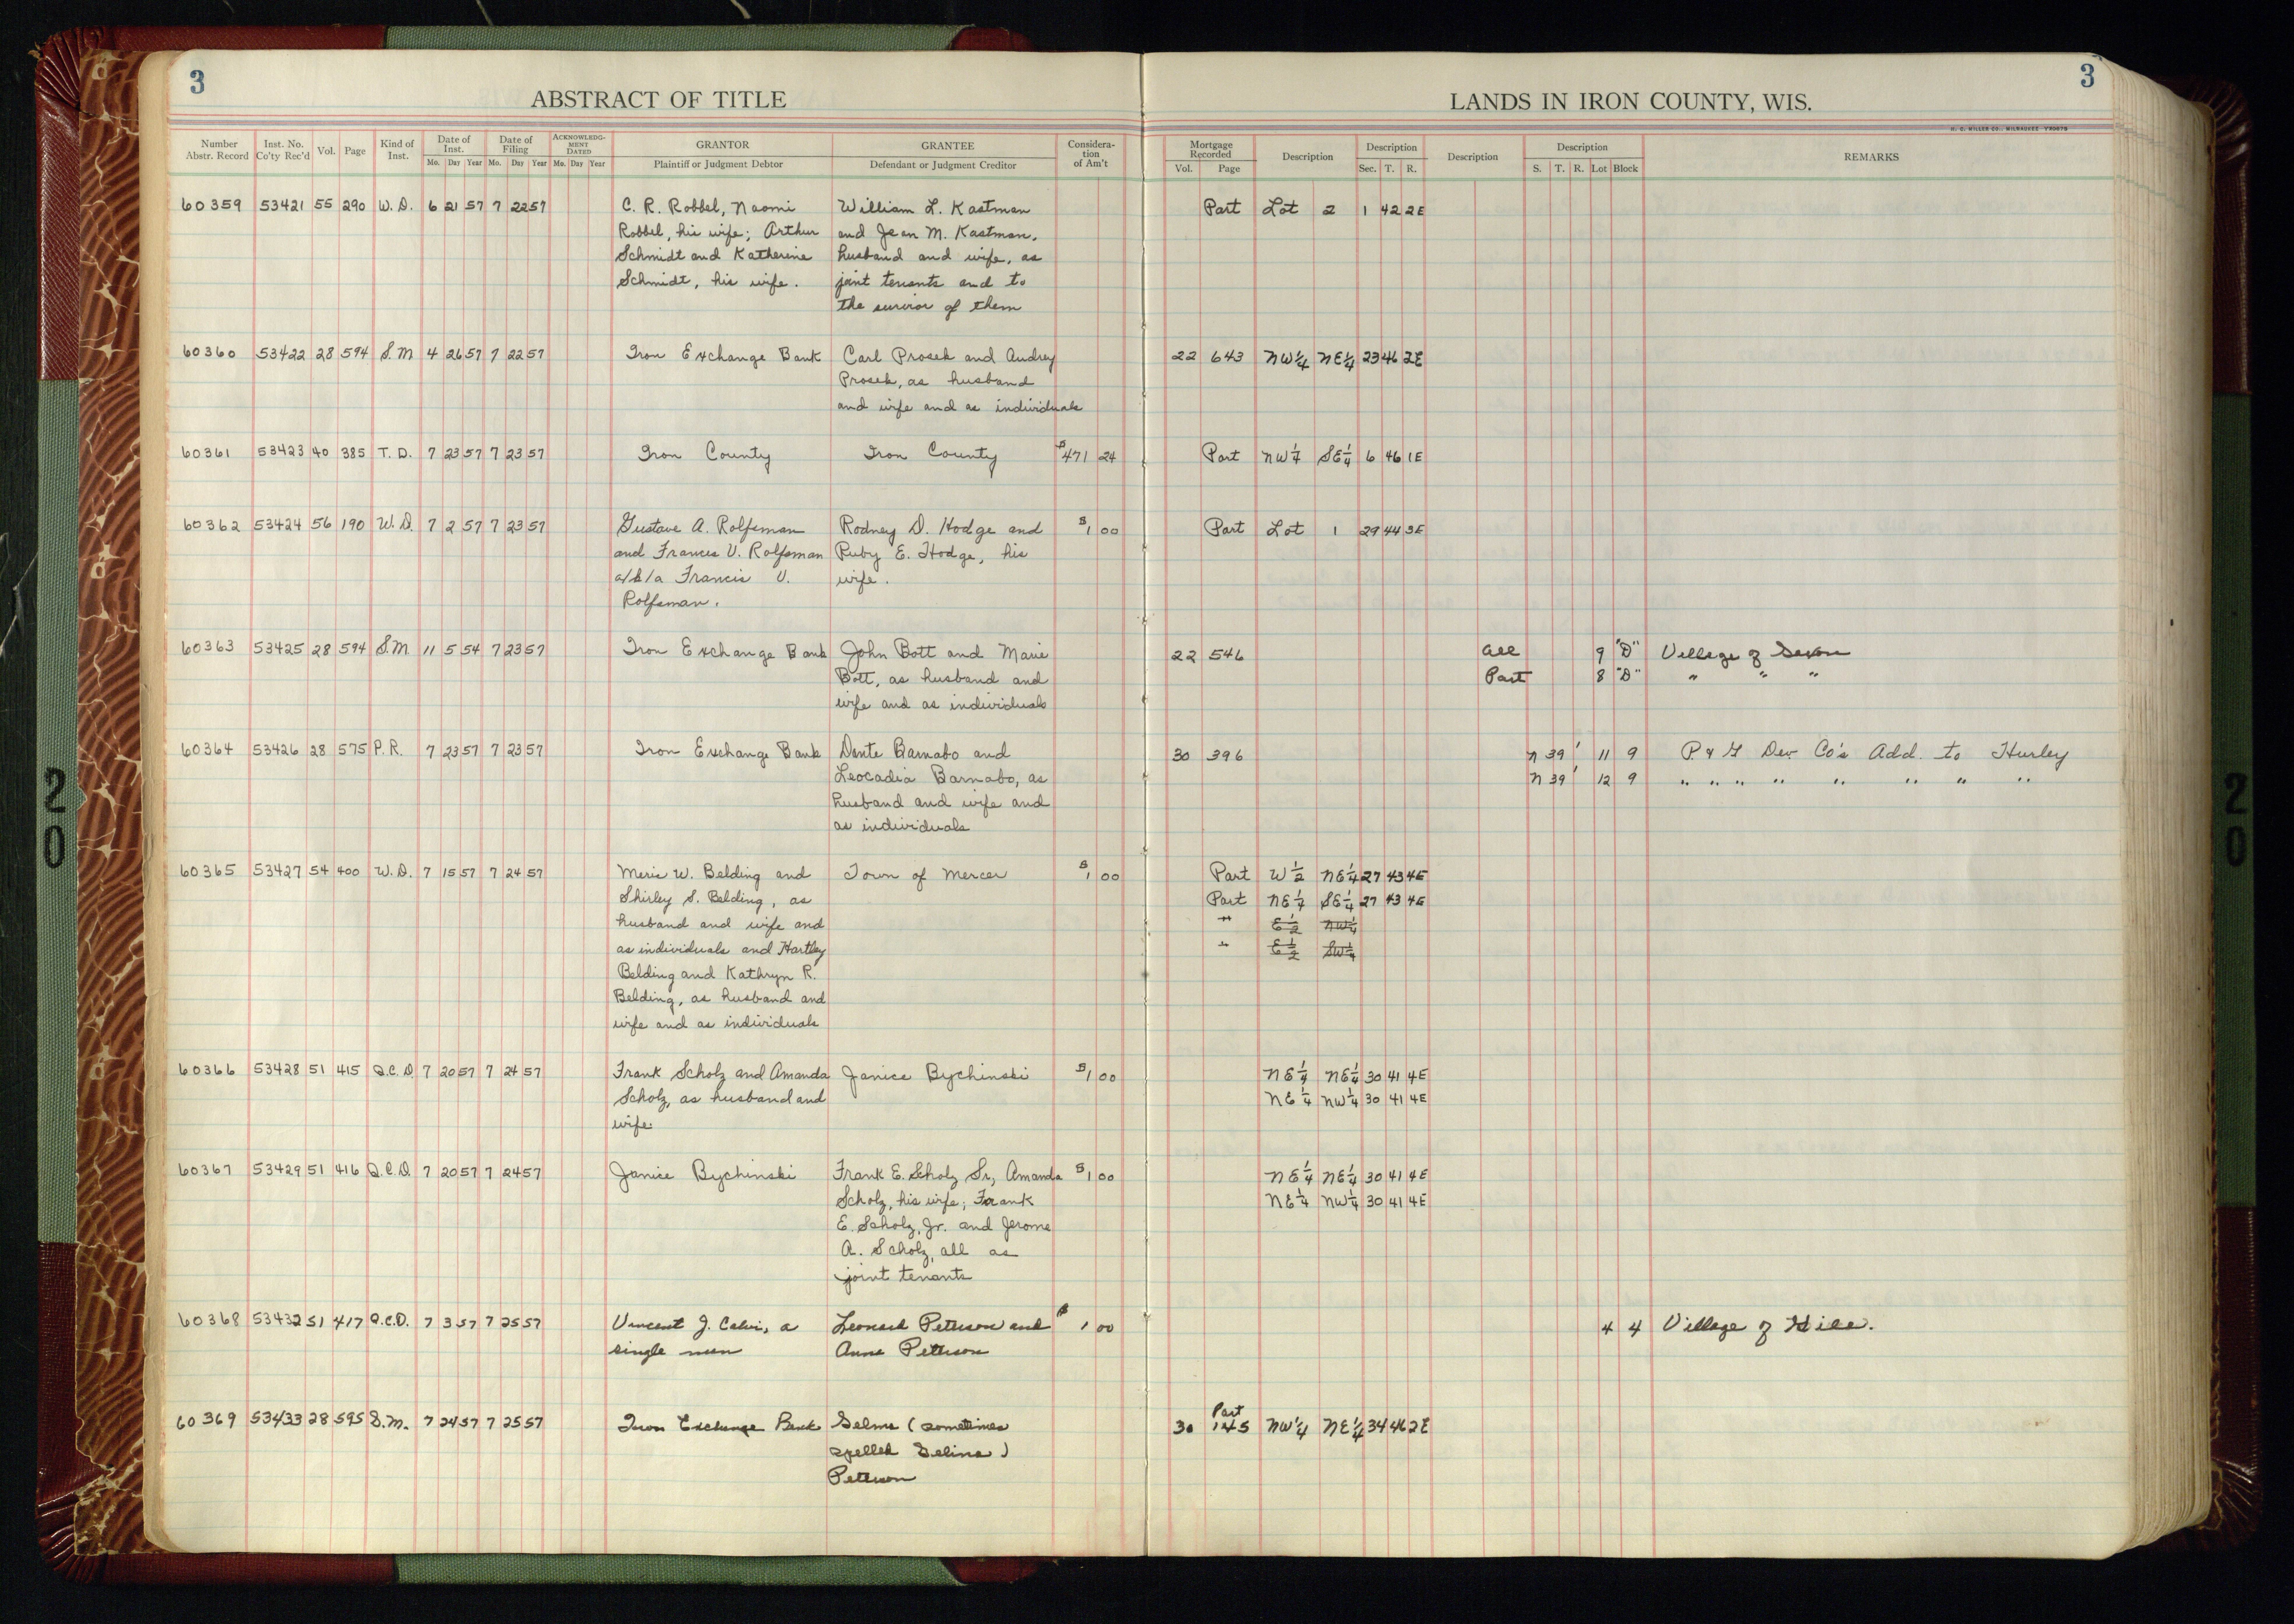 3
ABSTRACT OF TITLE
LANDS IN IRON COUNTY, WIS.
3
H. C. MILLER CO., MILWAUKEE
Number Abstr. Record Inst. No. Co'ty Rec'd Vol. Page Kind of Inst. Date of Inst. Mo. Day Year Date of Filing Mo. Day Year ACKNOWLEDGMENT DATED Mo. Day Year GRANTOR Plaintiff or Judgment Debtor GRANTEE Defendant or Judgment Creditor Consideration of Am't Mortgage Recorded Vol. Page Description Description Sec. T. R. Description Description S. T. R. Lot Block REMARKS
60359 53421 55 290 W.D. 6 21 57 7 22 57 C. R. Robbel, Naomi William L. Kastman Part Lot 2 1 42 2E
Robbel, his wife; Arthur and Jean M. Kastman,
Schmidt and Katherine husband and wife, as
Schmidt, his wife. joint tenants and to
the survior of them
60360 53422 28 594 S.M 4 26 57 7 22 57 Iron Exchange Bank Carl Prosek and Audrey 22 643 NW¼ NE¼ 23 46 2E
Prosek, as husband
and wife and as individuals
60361 53423 40 385 T.D. 7 23 57 7 23 57 Iron County Iron County $471 24 Part NW¼ SE¼ 6 46 1E
60362 53424 56 190 W.D. 7 2 57 7 23 57 Gustave A. Rolfsman Rodney D. Hodge and $1 00 Part Lot 1 29 44 3E
and Frances V. Rolfsman Ruby E. Hodge, his
a/k/a Francis V. wife.
Rolfsman.
60363 53425 28 594 S.M. 11 5 54 7 23 57 Iron Exchange Bank John Bott and Marie 22 546 All 9 "D" Village of Saxon
Bott, as husband and Part 8 "D" " " "
wife and as individuals
60364 53426 28 575 P.R. 7 23 57 7 23 57 Iron Exchange Bank Dante Barnabo and 30 396 N 39' 11 9 P. & G Dev Co's Add. to Hurley
Leocadia Barnabo, as N 39' 12 9 " " " " " " " "
husband and wife and
as individuals
60365 53427 54 400 W.D. 7 15 57 7 24 57 Merie W. Belding and Town of Mercer $1 00 Part W½ NE¼ 27 43 4E
Shirley S. Belding, as Part NE¼ SE¼ 27 43 4E
husband and wife and " E½ NW¼
as individuals and Hartley " E½ SW¼
Belding and Kathryn R.
Belding, as husband and
wife and as individuals
60366 53428 51 415 Q.C.D. 7 20 57 7 24 57 Frank Scholz and Amanda Janice Bychinski $1 00 NE¼ NE¼ 30 41 4E
Scholz, as husband and NE¼ NW¼ 30 41 4E
wife.
60367 53429 51 416 Q.C.D. 7 20 57 7 24 57 Janice Bychinski Frank E. Scholz Sr., Amanda $1 00 NE¼ NE¼ 30 41 4E
Scholz, his wife; Frank NE¼ NW¼ 30 41 4E
E. Scholz, Jr. and Jerome
A. Scholz, all as
joint tenants
60368 53432 51 417 Q.C.D. 7 3 57 7 25 57 Vincent J. Calvi, a Leonard Peterson and $1 00 4 4 Village of Hile.
single man Anna Peterson
60369 53433 28 595 S.M. 7 24 57 7 25 57 Iron Exchange Bank Selma (sometimes 30 Part 145 NW¼ NE¼ 34 46 2E
spelled Selina)
Peterson
20
20